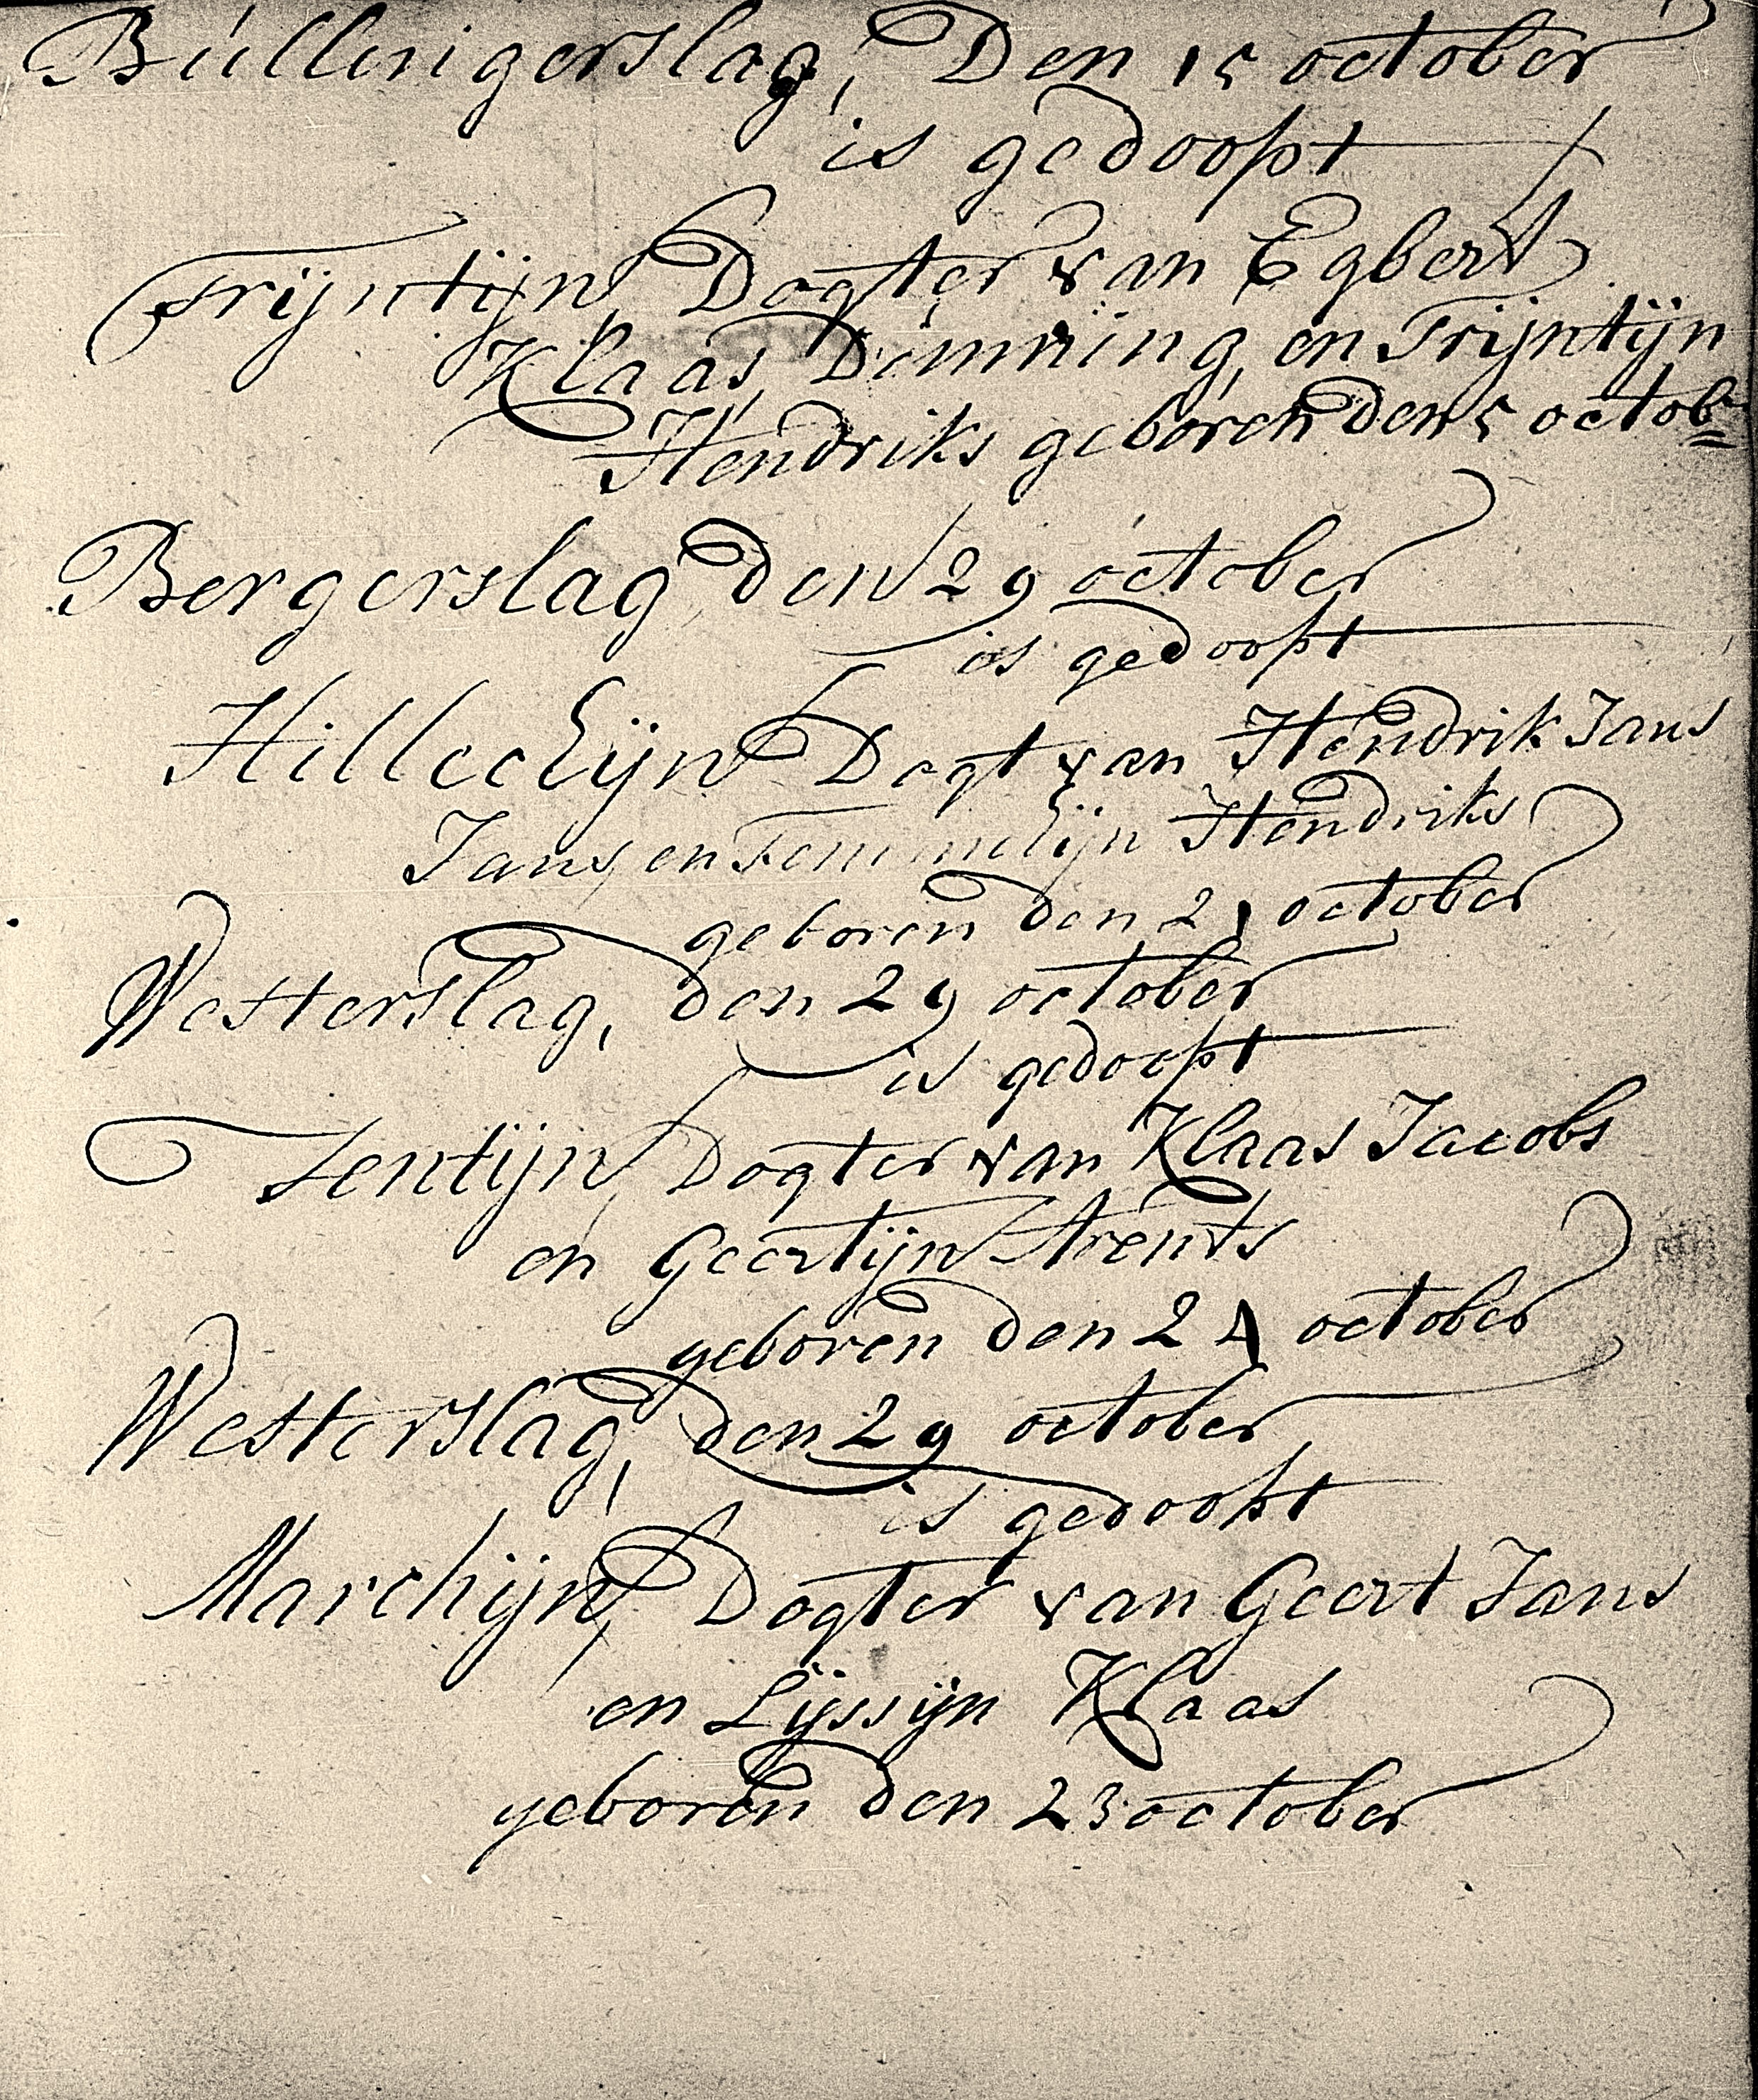 Búllingerslag, Den 15 october
is gedoopt
Trijntijn Dogter van Egbert
Klaas Dimning, en Trijntijn
Hendriks geboren den 5 octob=
Bergerslag den 29 october
is gedoopt
Hillechijn Dogt van Hendrik Jans
Jans en Femmechijn Hendriks
geboren den 21 october
Westerslag, den 29 october
is gedoopt
Jentijn Dogter van Klaas Jacobs
en Geertijn Arents
geboren den 24 october
Westerslag, den 29 october
is gedoopt
Marchijn, Dogter van Geert Jans
en Lijssijn Klaas
geboren den 23 october